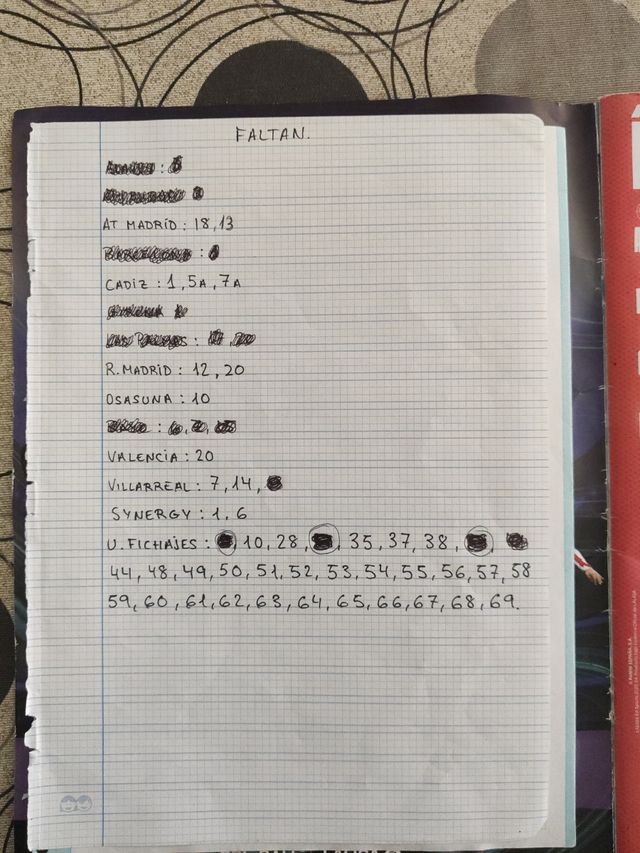 FALTAN.
AT MADRÍD : 18,13
CADIZ : 1, 5A, 7A
R. MADRID : 12, 20
OSASUNA : 10
VALENCIA : 20
VILLARREAL : 7, 14,
SYNERGY : 1, 6
U. FICHAJES : 10, 28, 35, 37, 38,
44, 48, 49, 50, 51, 52, 53, 54, 55, 56, 57, 58
59, 60, 61, 62, 63, 64, 65, 66, 67, 68, 69.